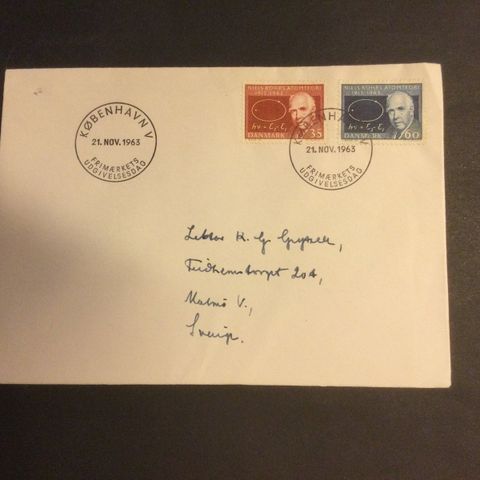 KØBENHAVN V
21. NOV. 1963
FRIMÆRKETS
UDGIVELSESDAG
NIELS BOHRS ATOMTEORI
1913-1963
hν = E₂-E₁
DANMARK 35
NIELS BOHRS ATOMTEORI
1913-1963
DANMARK 60
KØBENHAVN V
21. NOV. 1963
FRIMÆRKETS
UDGIVELSESDAG
Lektor K. G.
204,
Malmö V.,
Sverige.